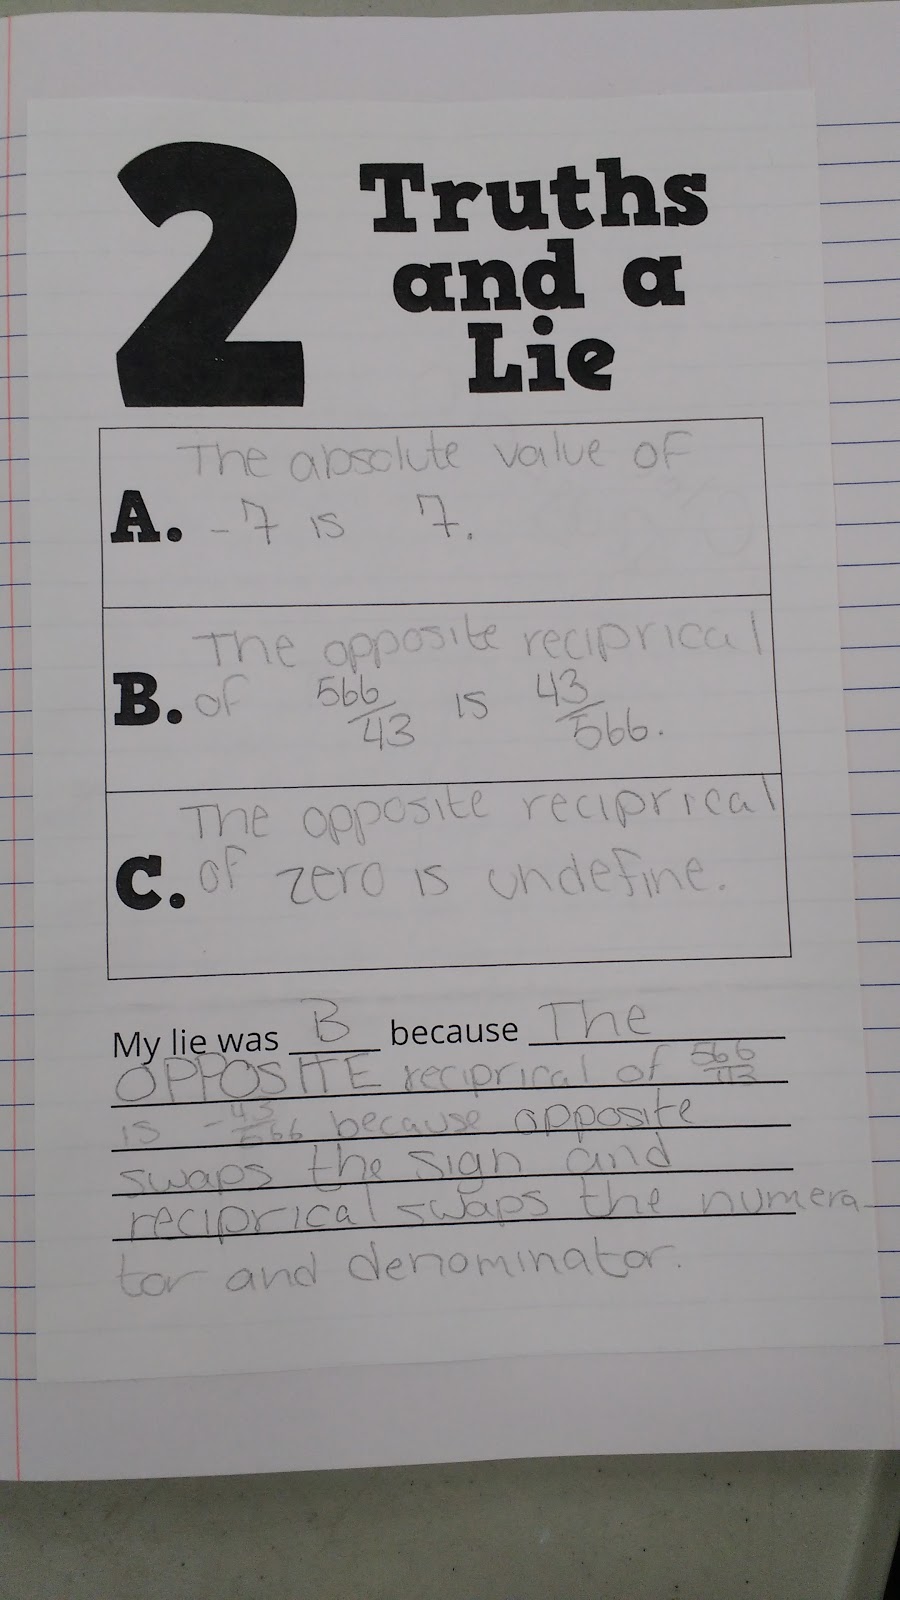 2 Truths
and a
Lie
The absolute value of
A. -7 is 7.
The opposite reciprical
B. of 566/43 is 43/566.
The opposite reciprical
C. of zero is undefine.
My lie was B because The
OPPOSITE reciprical of 566/43
is -43/566 because opposite
swaps the sign and
reciprical swaps the numera-
tor and denominator.